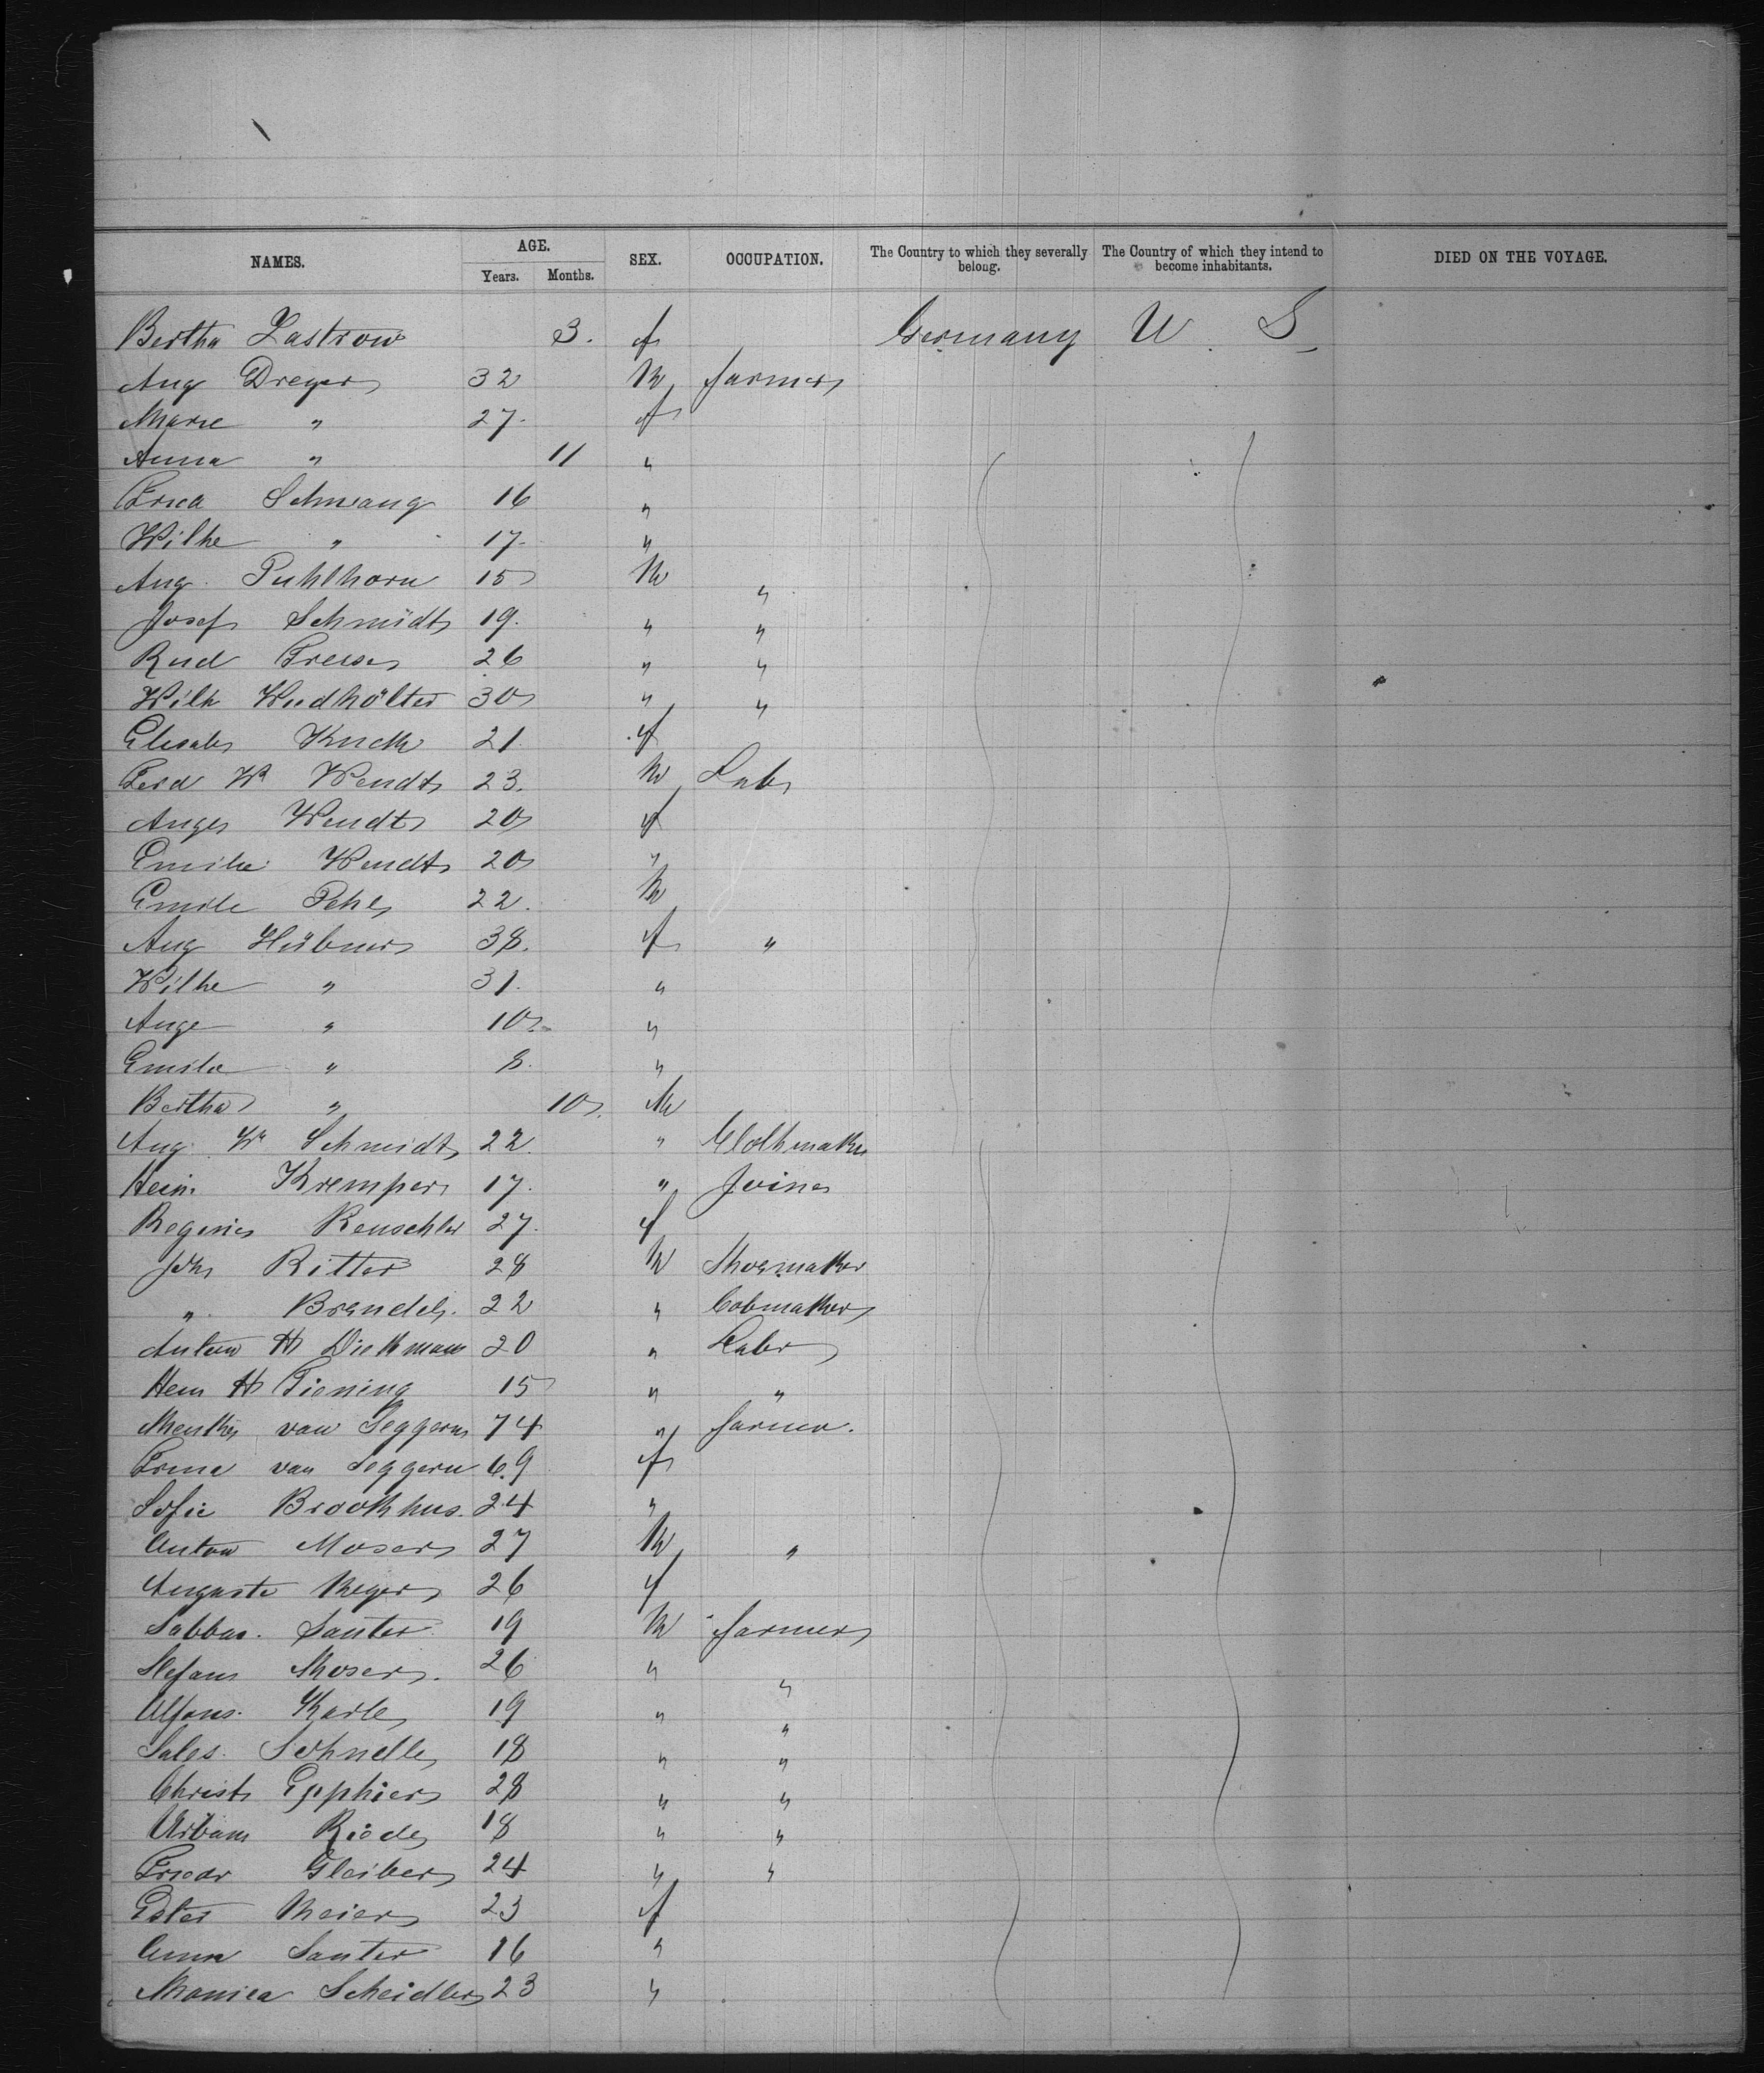 NAMES. AGE. Years. Months. SEX. OCCUPATION. The Country to which they severally belong. The Country of which they intend to become inhabitants. DIED ON THE VOYAGE.
Bertha Zastrow 3. f Germany U. S.
Aug Dreger 32 M farmer
Marie " 27. f
Anna " 11 "
Schwang 16 "
Wilhe " 17. "
Aug. Puhlhorn 15 M "
Josef Schmidt 19. " "
Rud 26 " "
Wilh Windhölter 30 " "
21. f
Ferd W Wendt 23. M Lab
Auge Wendt 20 f
Emilie Wendt 20 "
Emile Pehl 22. M
Aug Hübner 38. f "
Wilhe " 31. "
Auge " 10. "
Emile " 8. "
Bertha " 10. M
Aug. W Schmidt 22. " Clothmaker
Hein. Kremper 17. " Joiner
Regine Renschler 27. f
Joh Ritter 28 M Shoemaker
" Brendel. 22 " Cabmaker
Anton H Diekman 20 " Labr
Hein H Tiening 15 " "
van Seggern 74 " farmer.
van Seggern 69 f
Sofie Brookhus. 24 "
Anton Moser 27 M "
Auguste Meyer 26 f
Sabbas. Sauter 19 M farmer
Stefan Moser. 26 " "
Alfons. Karle 19 " "
Sales. Schnelle 18 " "
Christ 28 " "
Urban Riede 18 " "
Friedr Gleiber 24 " "
Ester Meier 23 f
Anna Sauter 16 "
Monica Scheidler 23 "